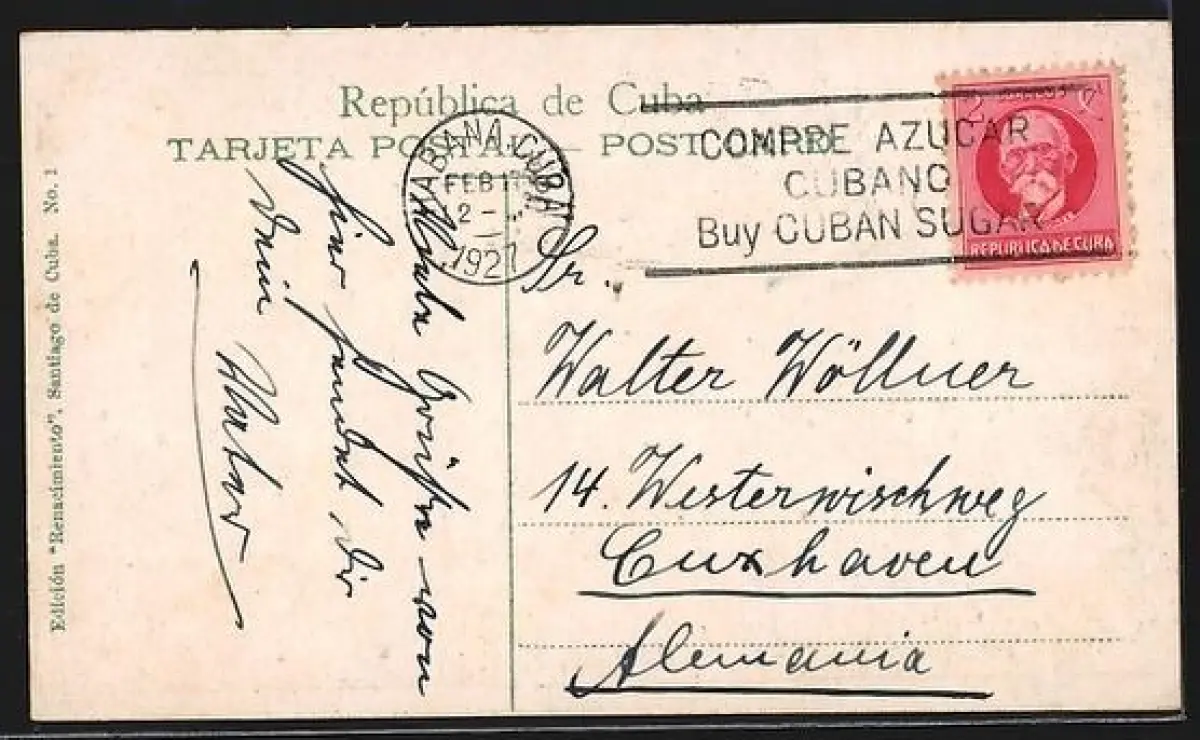 República de Cuba
TARJETA POSTAL — POST CARD
HABANA, CUBA
FEB 1
2 -
1927
COMPRE AZUCAR
CUBANO
Buy CUBAN SUGAR
2 2
REPUBLICA DE CUBA
Sr.
Walter Wöllner
14. Westerwischweg
Cuxhaven
Alemania
Viele Grüße von
hier sendet Dir
Dein Vater
Edición "Renacimiento", Santiago de Cuba. No. 1